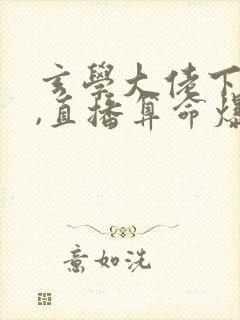 玄學大佬下
,直播算命爆
意如洗